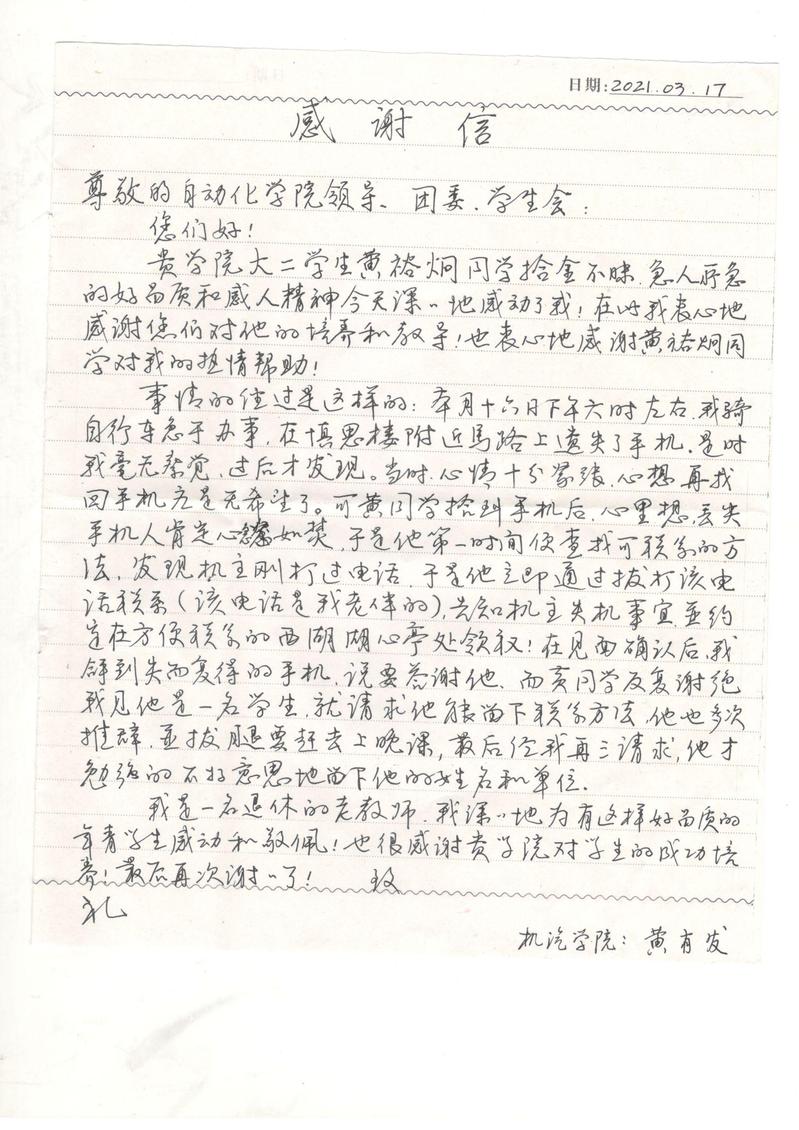 日期:2021.03.17
感谢信
尊敬的自动化学院领导、团委、学生会:
您们好!
贵学院大二学生黄裕炯同学拾金不昧、急人所急
的好品质和感人精神今天深〃地感动了我!在此我衷心地
感谢您们对他的培养和教导!也衷心地感谢黄裕炯同
学对我的热情帮助!
事情的经过是这样的:本月十六日下午六时左右,我骑
自行车急于办事,在慎思楼附近马路上遗失了手机,是时
我毫无察觉,过后才发现。当时,心情十分紧张,心想再找
回手机应是无希望了。可黄同学捡到手机后,心里想,丢失
手机人肯定心急如焚,于是他第一时间便查找可联系的方
法,发现机主刚打过电话,于是他立即通过拔打该电
话联系(该电话是我老伴的),告知机主失机事宜,並约
定在方便联系的西湖湖心亭处领取!在见面确认后,我
得到失而复得的手机,说要答谢他、而黄同学反复谢绝
我见他是一名学生,就请求他能留下联系方法,他也多次
推辞,並拔腿要赶去上晚课,最后经我再三请求,他才
勉强的不好意思地留下他的姓名和单位.
我是一名退休的老教师,我深〃地为有这样好品质的
年青学生感动和敬佩!也很感谢贵学院对学生的成功培
养!最后再次谢〃了! 致
礼
机汽学院:黄有发